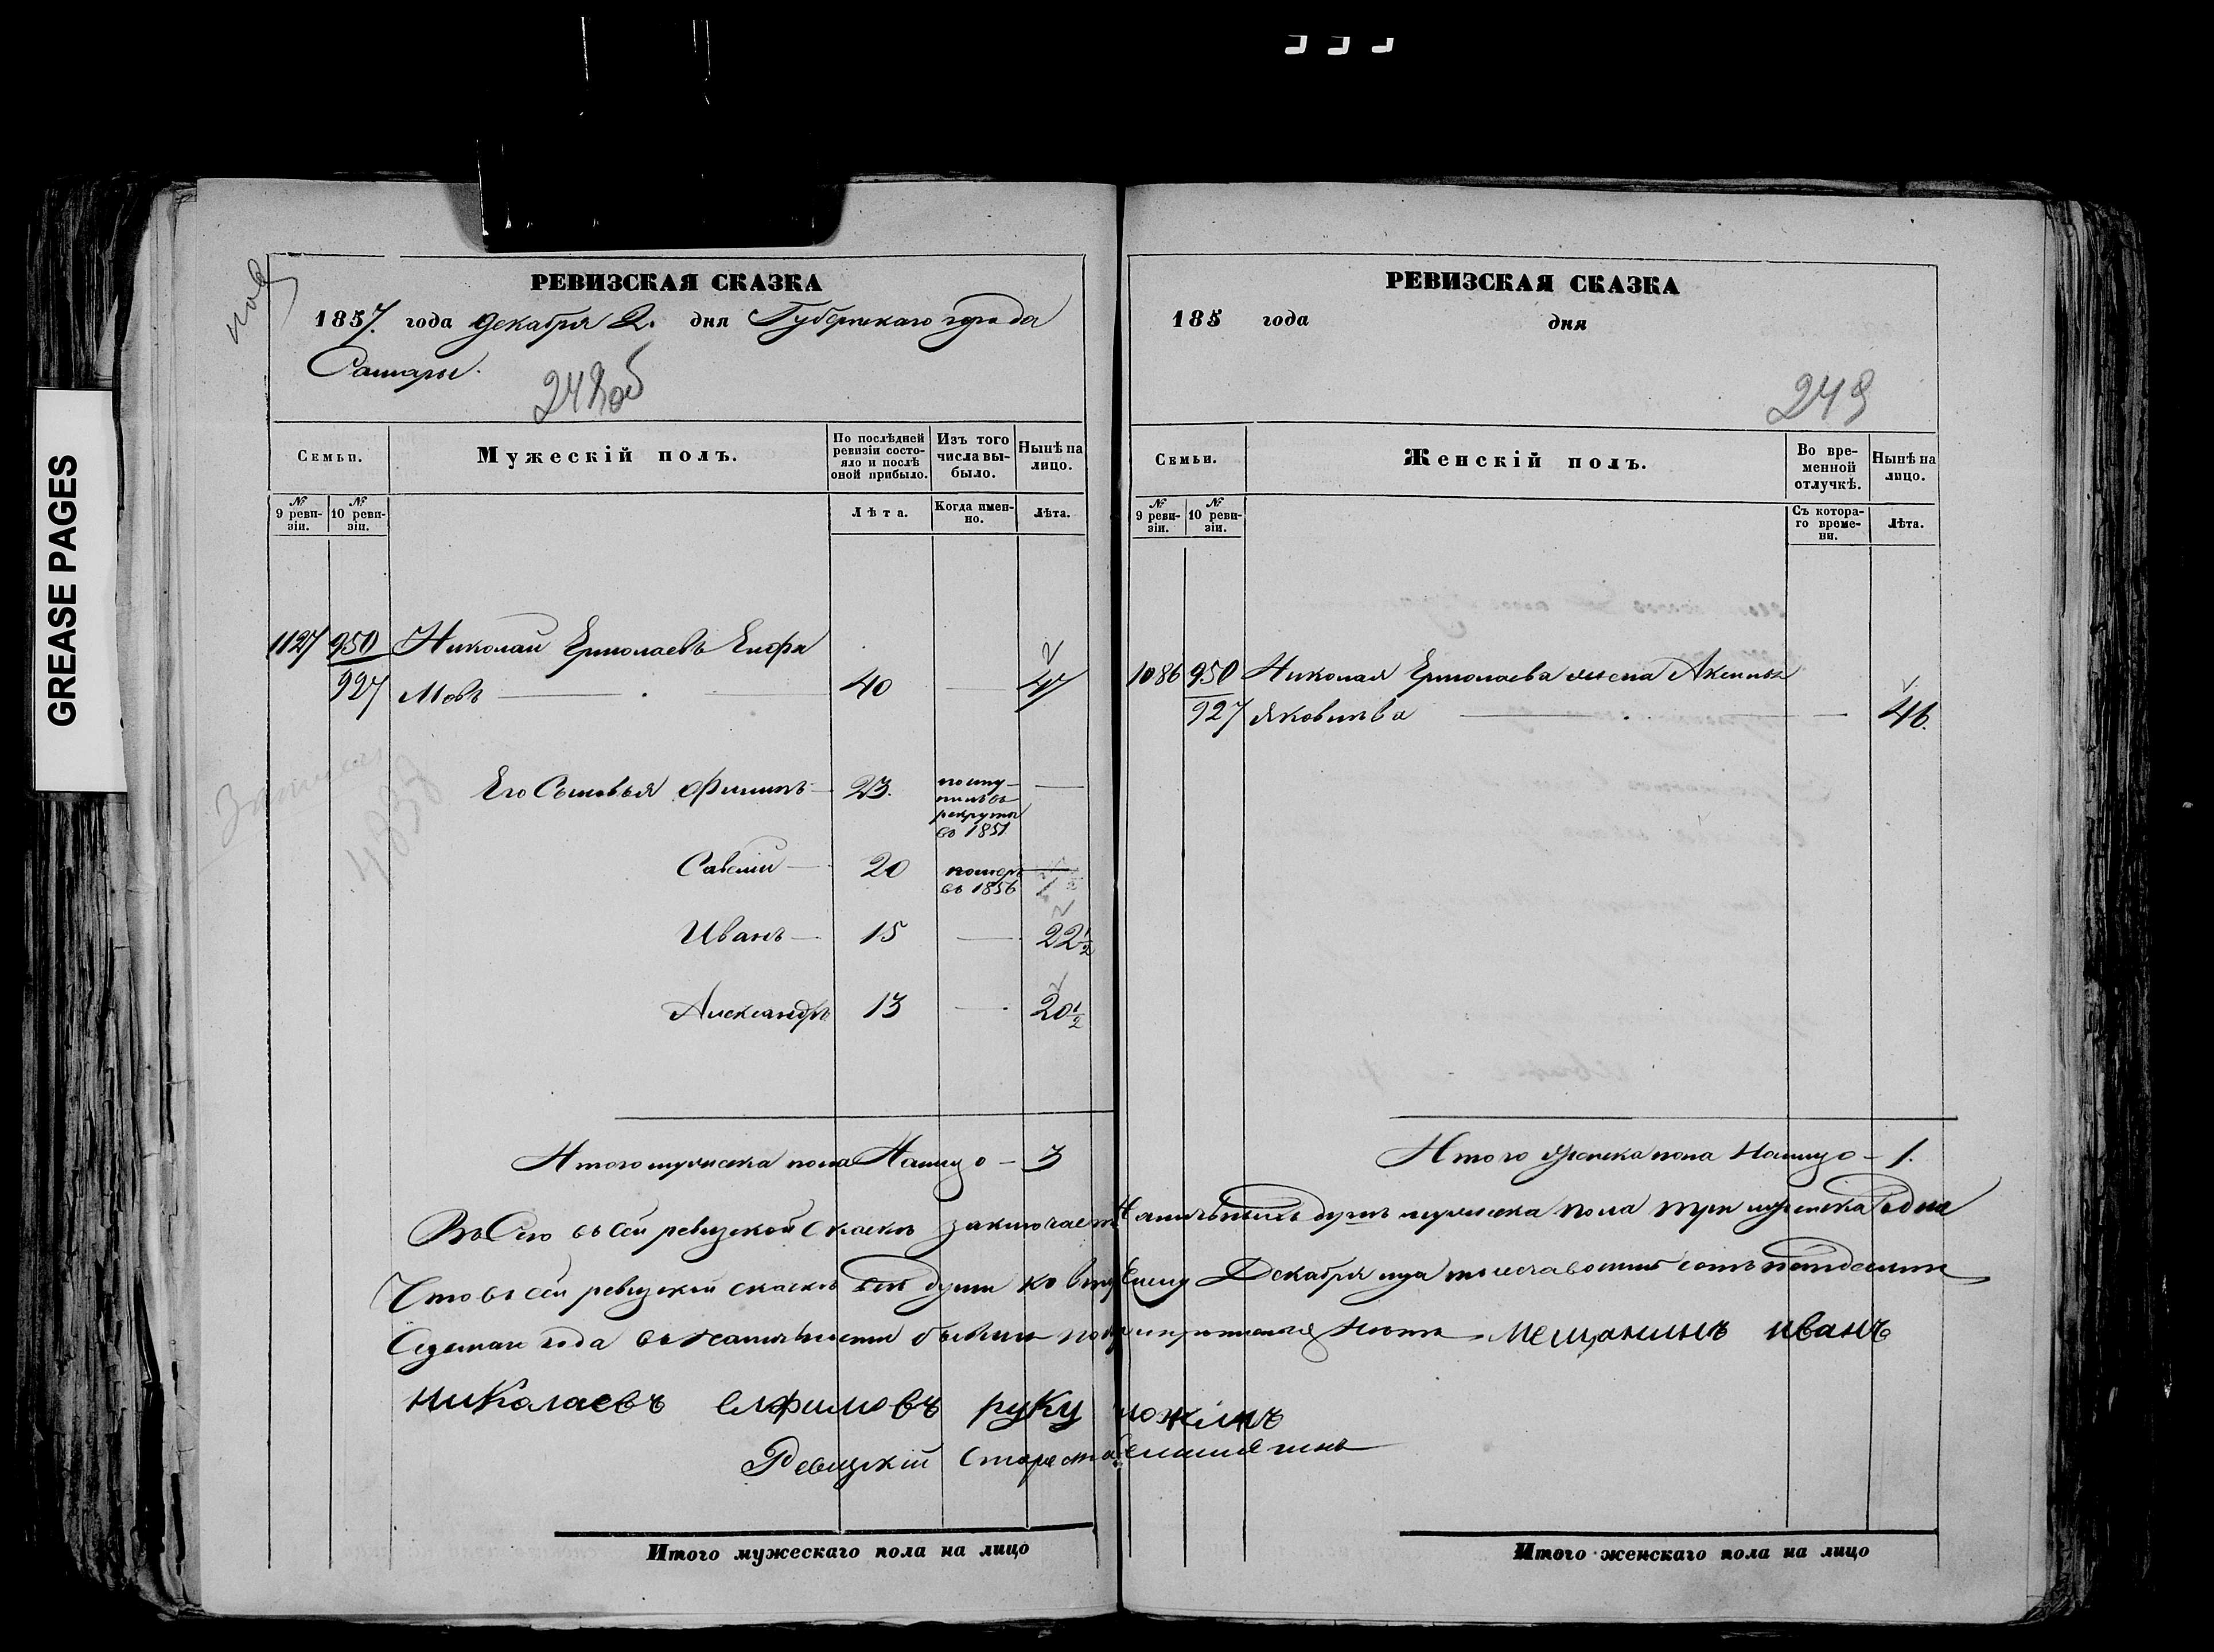 GREASE PAGES
РЕВИЗСКАЯ СКАЗКА
1857. года Декабря 2. дня Губернскаго города
Самары.
248об
Семьи.
Мужескій полъ.
По послѣдней ревизіи состояло и послѣ оной прибыло.
Изъ того числа выбыло.
Нынѣ на лицо.
№ 9 ревизіи.
№ 10 ревизіи.
Лѣта.
Когда именно.
Лѣта.
1127 950 Николай Ермолаевъ Елфи
927 мовъ 40 — 47
Его Сыновья Филипъ — 23. поступилъ въ рекруты въ 1851 —
Савелій — 20 померъ въ 1856
Иванъ — 15 — 22 1/2
Александръ 13 — 20 1/2
Итого мужеска пола На лицо — 3
РЕВИЗСКАЯ СКАЗКА
185 года дня
249
Семьи.
Женскій полъ.
Во временной отлучкѣ.
Нынѣ на лицо.
№ 9 ревизіи.
№ 10 ревизіи.
Съ котораго времени.
Лѣта.
1086 950 Николая Ермолаева жена Аксинья
927 Яковлева — 46.
Итого женска пола На лицо — 1.
Всего въ сей ревизской скаскѣ заключает наличныхъ душъ мужеска пола три женска одна
Что въ сей ревизской скаскѣ всѣ души ко Декабря тысяча восемь сотъ пятдесятъ
Седьмаго года въ наличности были нѣтъ мещанинъ иванъ
николаевъ елфимовъ руку ложилъ
Ревизскій Староста
Итого мужескаго пола на лицо
Итого женскаго пола на лицо